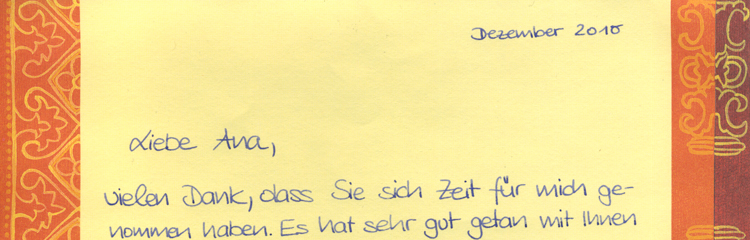 Dezember 2010
Liebe Ana,
vielen Dank, dass Sie sich Zeit für mich ge-
nommen haben. Es hat sehr gut getan mit Ihnen